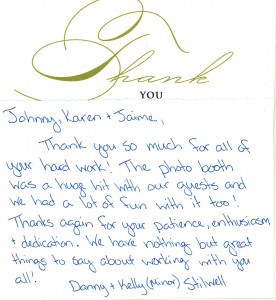 Thank
YOU
Johnny, Karen + Jaime,
Thank you so much for all of
your hard work! The photo booth
was a huge hit with our guests and
we had a lot of fun with it too!
Thanks again for your patience, enthusiasm
+ dedication. We have nothing but great
things to say about working with you
all!
Danny + Kelly (Minor) Stilwell